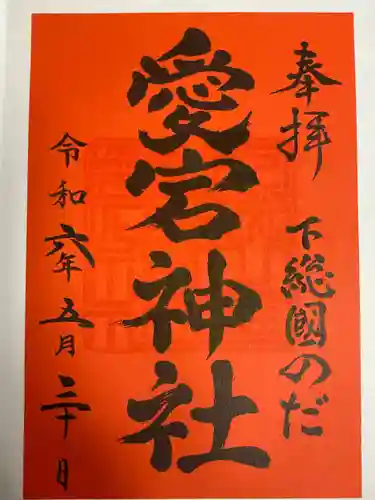 奉拝
下総國のだ
愛宕神社
令和六年五月二十日